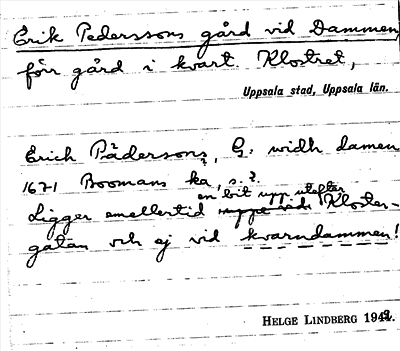 Erik Pederssons gård vid Dammen
förr gård i kvart. Klostret,
Uppsala stad, Uppsala län.
Erich Pädersons, G. widh damen
1671 Boomans ka, s. ?.
en bit upp utefter
Ligger emellertid Kloster-
gatan och ej vid kvarndammen!
HELGE LINDBERG 1949.